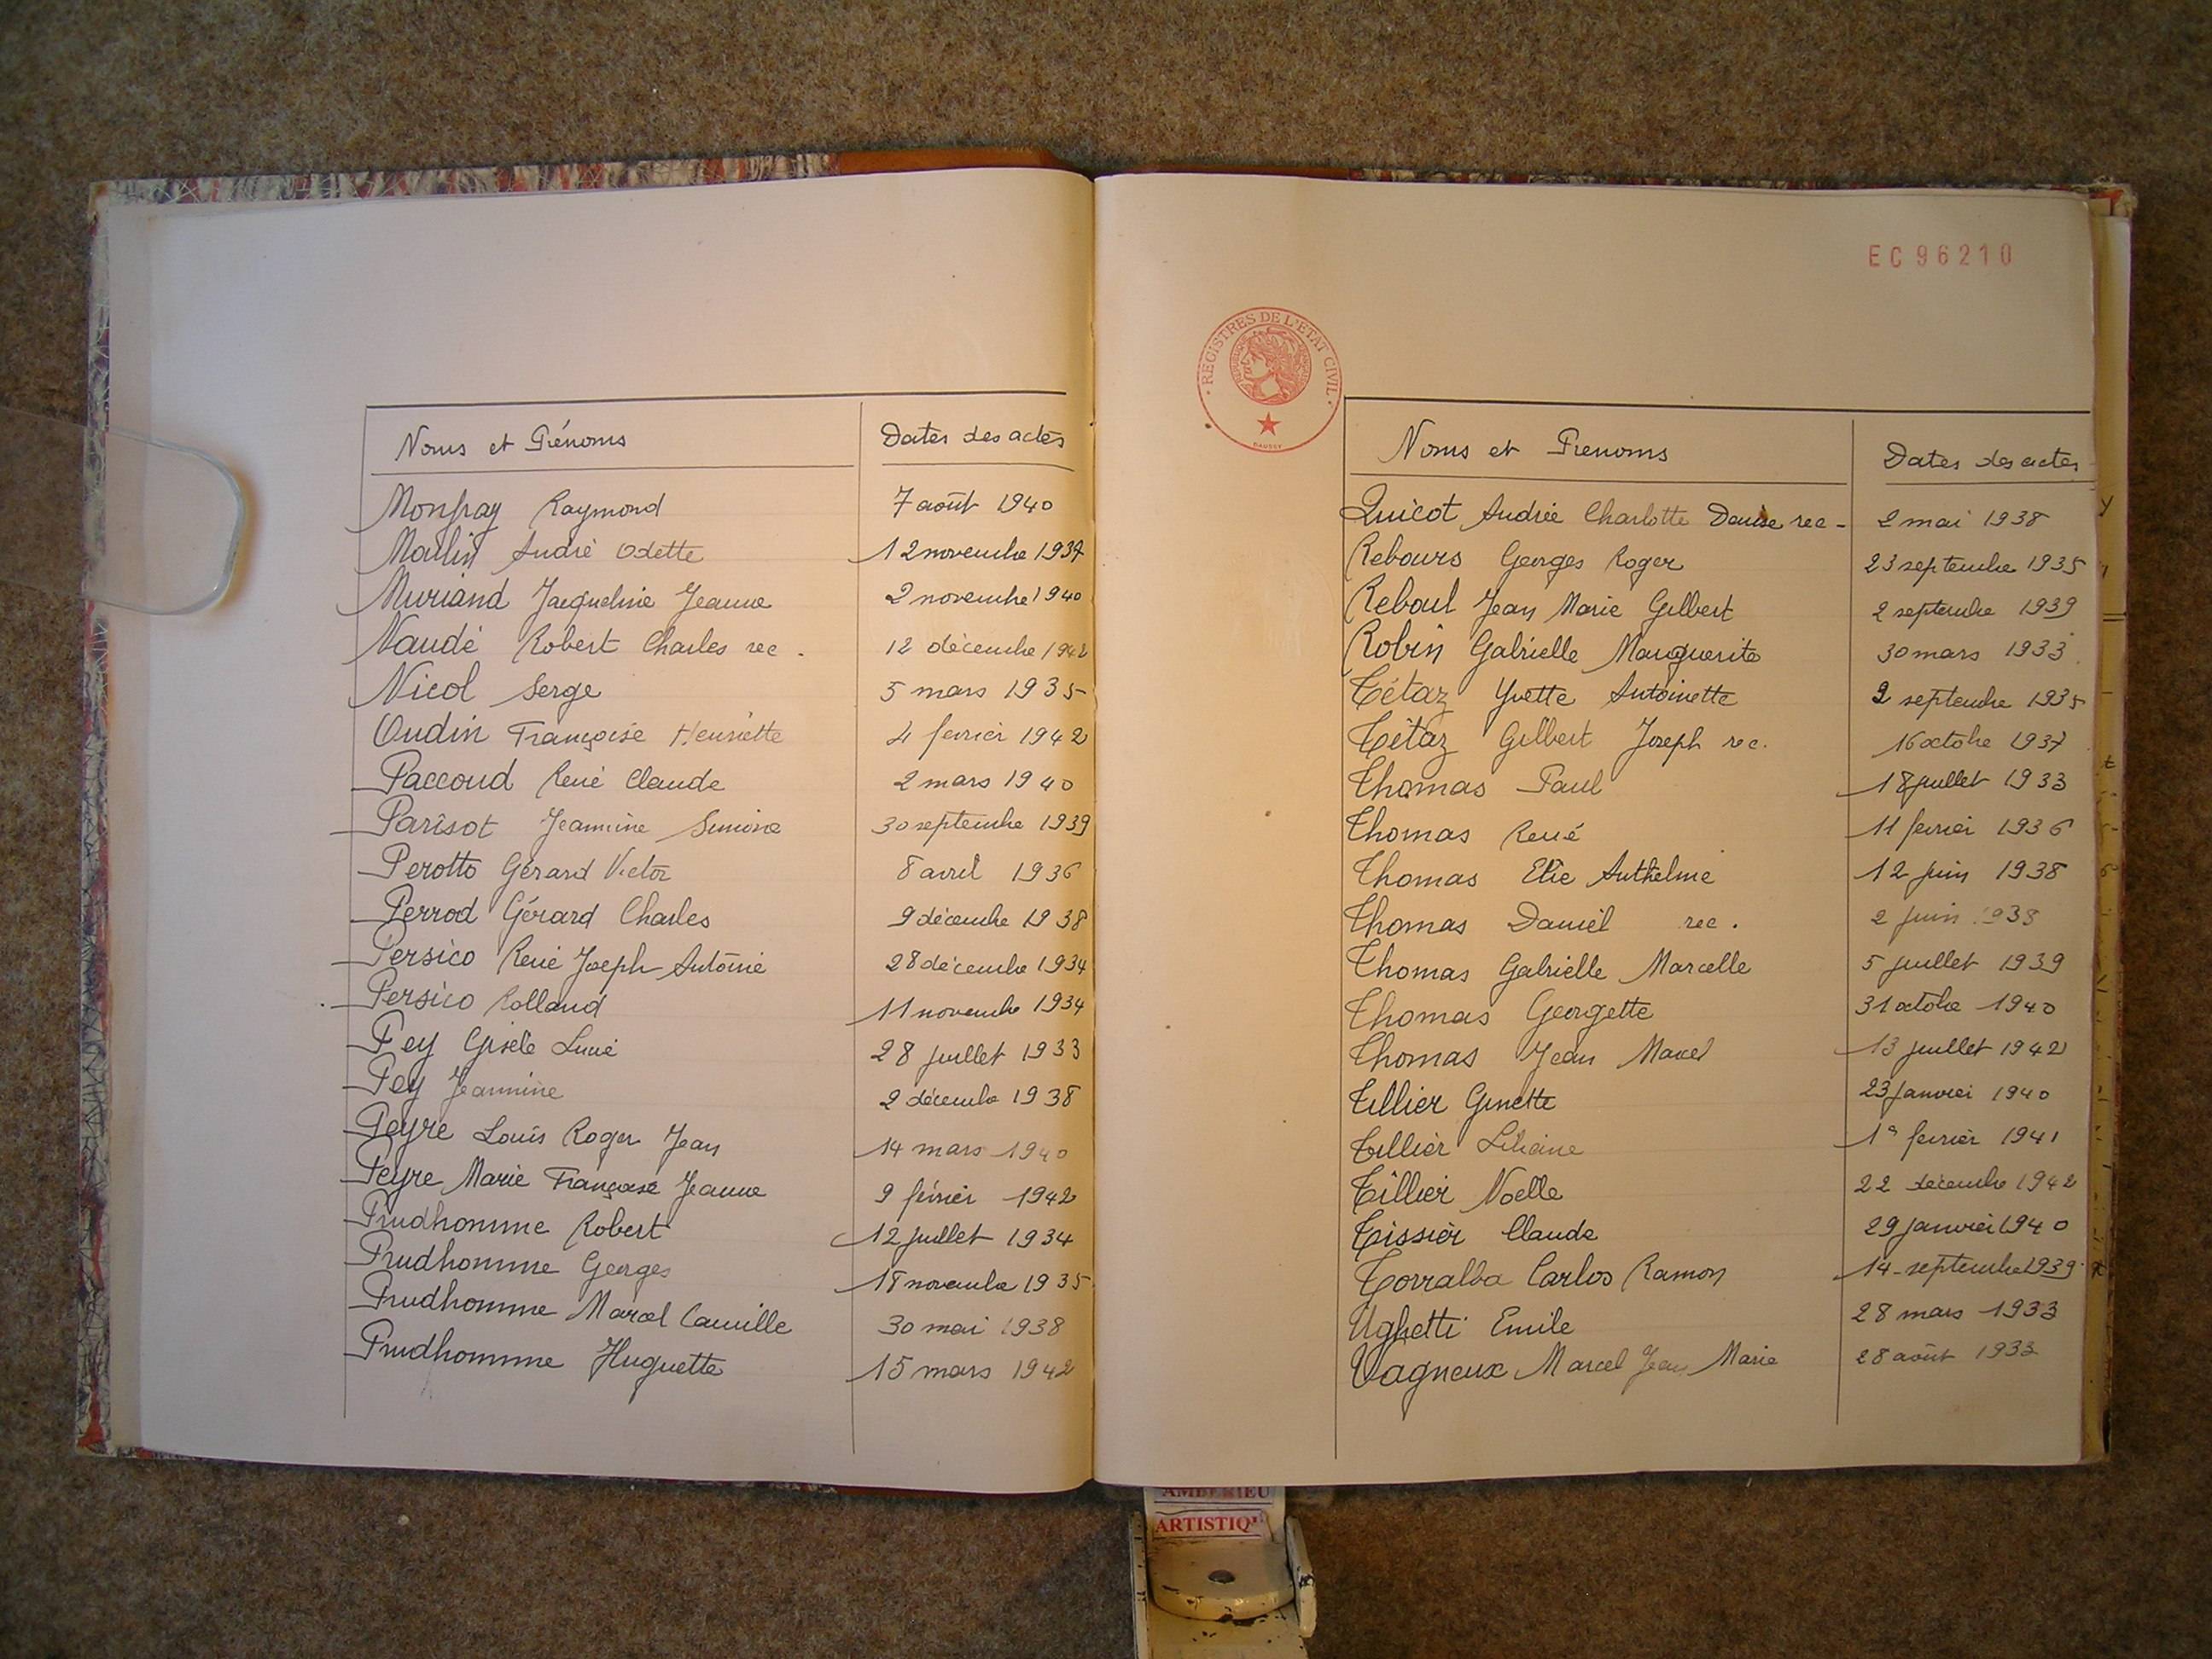 Noms et Prénoms Dates des actes
Monfray Raymond 7 août 1940
Moulin André Odette 12 novembre 1937
Muriand Jacqueline Jeanne 2 novembre 1940
Naudé Robert Charles rec. 12 décembre 1942
Nicol Serge 5 mars 1935
Oudin Françoise Henriette 4 fevrier 1942
Paccoud René Claude 2 mars 1940
Parisot Jeannine Simone 30 septembre 1939
Perotto Gérard Victor 8 avril 1936
Perrod Gérard Charles 9 décembre 1938
Persico René Joseph Antoine 28 décembre 1934
Persico Rolland 11 novembre 1934
Pey Gisèle Lucie 28 juillet 1933
Pey Jeannine 2 décembre 1938
Peyre Louis Roger Jean 14 mars 1940
Peyre Marie Françoise Jeanne 9 février 1942
Prudhomme Robert 12 juillet 1934
Prudhomme Georges 18 novembre 1935
Prudhomme Marcel Camille 30 mai 1938
Prudhomme Huguette 15 mars 1942
EC 96210
REGISTRES DE L'ETAT CIVIL
Noms et Prenoms Dates des actes
Quicot Andrée Charlotte Denise rec - 2 mai 1938
Rebours Georges Roger 23 septembre 1935
Reboul Jean Marie Gilbert 2 septembre 1939
Robin Gabrielle Marguerite 30 mars 1933
Tétaz Yvette Antoinette 2 septembre 1935
Tétaz Gilbert Joseph rec. 16 octobre 1937
Thomas Paul 18 juillet 1933
Thomas René 11 fevrier 1936
Thomas Elie Anthelme 12 juin 1938
Thomas Daniel rec. 2 juin 1938
Thomas Gabrielle Marcelle 5 juillet 1939
Thomas Georgette 31 octobre 1940
Thomas Jean Marcel 13 juillet 1942
Tillier Ginette 23 janvier 1940
Tillier Liliane 1er fevrier 1941
Tillier Noelle 22 décembre 1942
Tissier Claude 29 janvier 1940
Torralba Carlos Ramon 14 septembre 1939
Ughetti Emile 28 mars 1933
Vagneux Marcel Jean Marie 28 août 1933
AMBERIEU
ARTISTIQU